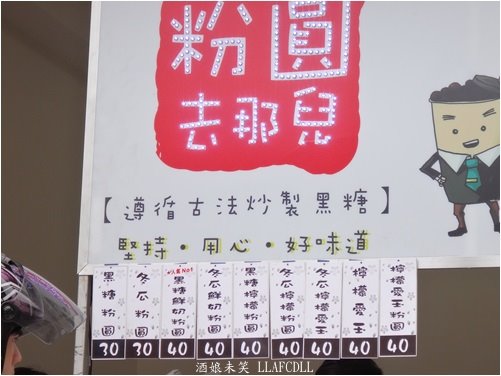 粉圓
去那兒
【遵循古法炒製黑糖】
堅持・用心・好味道
黑糖粉圓
30
冬瓜粉圓
30
人氣No1
黑糖鮮奶粉圓
40
冬瓜鮮奶粉圓
40
黑糖檸檬粉圓
40
冬瓜檸檬粉圓
40
冬瓜檸檬愛玉
40
檸檬愛玉
40
檸檬愛玉粉圓
40
酒娘未笑 LLAFCDLL